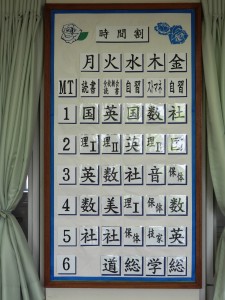 時間割
月 火 水 木 金
MT 読書 自習 自習
1 国 英 国 数 社
2 理I 理II 英 理II 国
3 英 数 社 音 保体
4 数 美 理I 保体 数
5 社 社 保体 技家 英
6 道 総 学 総